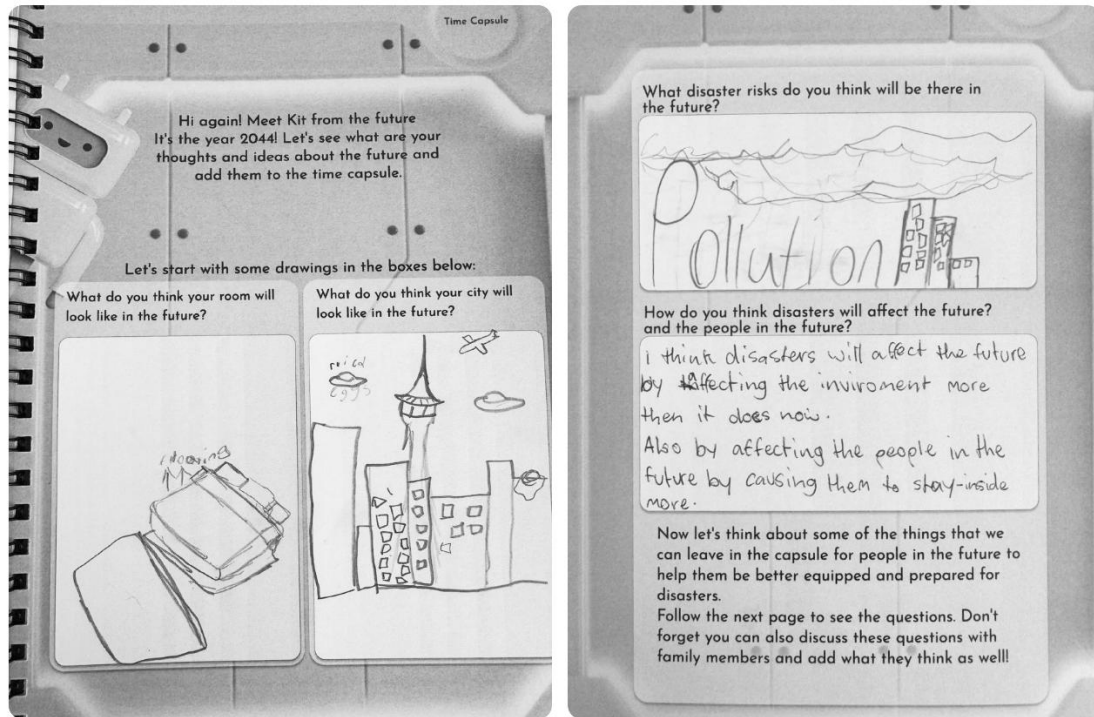 Time Capsule
Hi again! Meet Kit from the future
It's the year 2044! Let's see what are your
thoughts and ideas about the future and
add them to the time capsule.
Let's start with some drawings in the boxes below:
What do you think your room will
look like in the future?
What do you think your city will
look like in the future?
What disaster risks do you think will be there in
the future?
Pollution
How do you think disasters will affect the future?
and the people in the future?
i think disasters will affect the future
by affecting the inviroment more
then it does now.
Also by affecting the people in the
future by causing them to stay-inside
more.
Now let's think about some of the things that we
can leave in the capsule for people in the future to
help them be better equipped and prepared for
disasters.
Follow the next page to see the questions. Don't
forget you can also discuss these questions with
family members and add what they think as well!